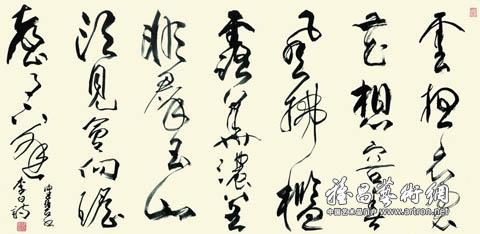 雲想衣裳
花想容春
風拂檻
露華濃若
非群玉山
頭見會向瑤
臺月下逢
李白詩
雅昌藝術網
www.artron.net